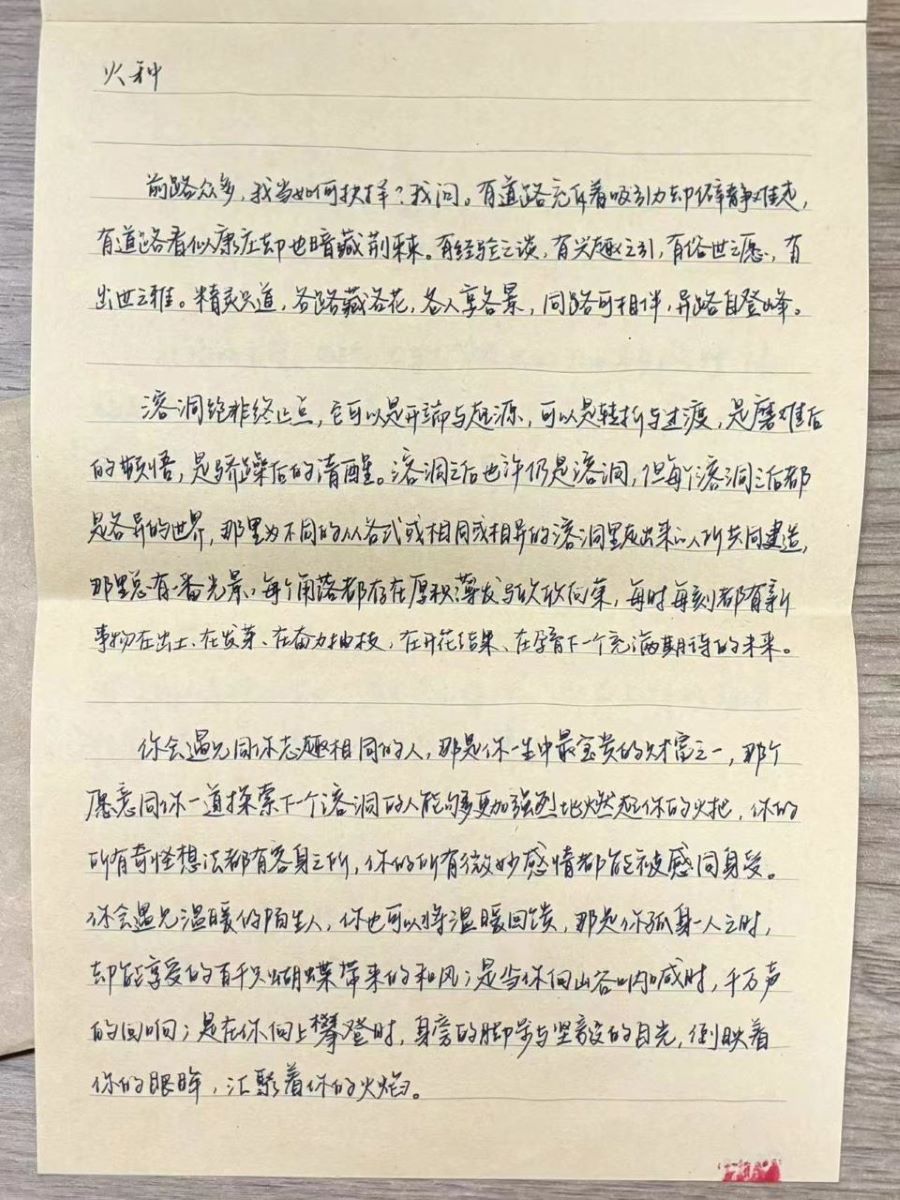 火种
前路众多，我当如何抉择？我问。有道路充斥着吸引力却僻静难走，
有道路看似康庄却也暗藏荆棘。有经验之谈，有兴趣之引，有俗世之愿，有
出世之雅。精灵只道，各路藏各花，各人享各景，同路可相伴，异路自登峰。
溶洞绝非终止点，它可以是开端与起源，可以是转折与过渡，是磨难后
的顿悟，是骄躁后的清醒。溶洞之后也许仍是溶洞，但每个溶洞之后都
是各异的世界，那里为不同的从各式或相同或相异的溶洞里走出来的人所共同建造，
那里总有一番光景，每个角落都存在厚积薄发与欣欣向荣，每时每刻都有新
事物在出土、在发芽、在奋力抽枝，在开花结果、在孕育下一个充满期待的未来。
你会遇见同你志趣相同的人，那是你一生中最宝贵的财富之一，那个
愿意同你一道探索下一个溶洞的人能够更加强烈地燃起你的火把，你的
所有奇怪想法都有容身之所，你的所有微妙感情都能被感同身受。
你会遇见温暖的陌生人，你也可以将温暖回馈，那是你孤身一人之时，
却能享受的百千只蝴蝶带来的和风；是当你向山谷呐喊时，千万声
的回响；是在你向上攀登时，身旁的脚步与坚毅的目光，倒映着
你的眼眸，汇聚着你的火焰。